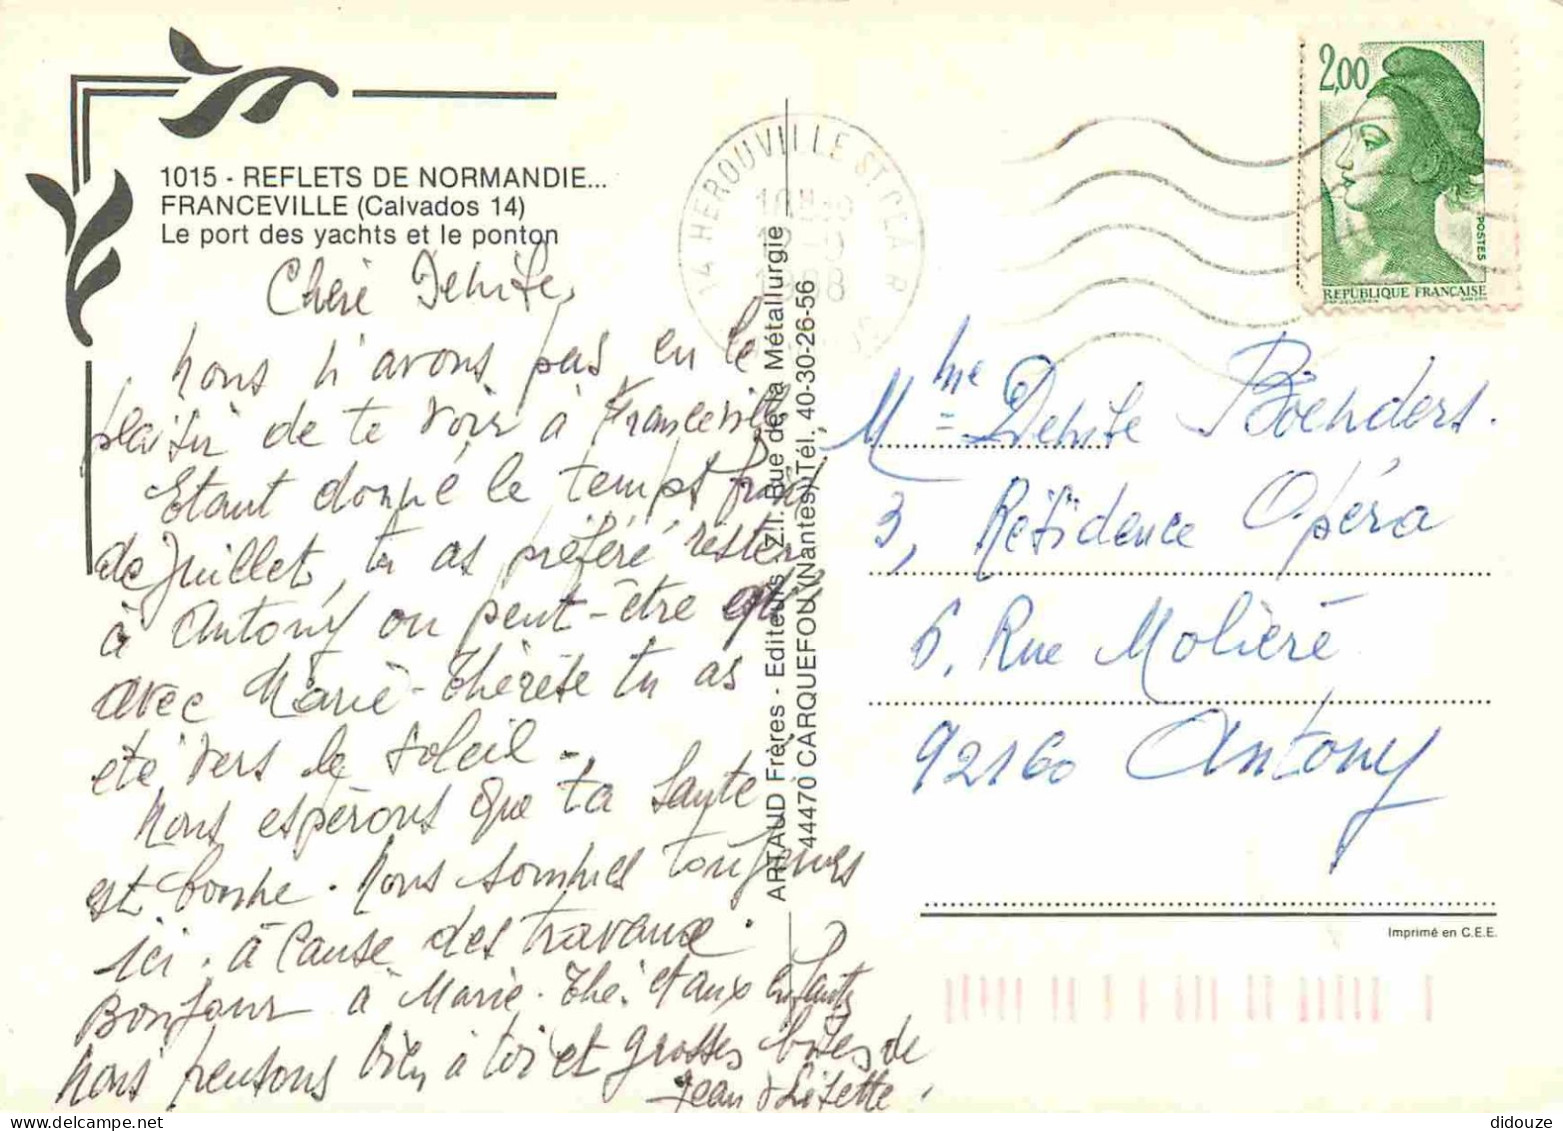 1015 - REFLETS DE NORMANDIE...
FRANCEVILLE (Calvados 14)
Le port des yachts et le ponton
Chère Denise,
Nous n'avons pas eu le
plaisir de te voir à Franceville
Etant donné le temps froid
de Juillet, tu as préféré rester
à Antony ou peut-être
avec Marie-Thérèse tu as
été vers le soleil -
Nous espérons que ta santé
est bonne. Nous sommes toujours
ici. à cause des travaux.
Bonjour à Marie-Thé. et aux enfants
nous pensons bien à toi et grosses bises de
Jean & Lisette.
ARTAUD Frères - Editeurs - Z.I. Rue de la Métallurgie
44470 CARQUEFOU (Nantes) Tél. 40-30-26-56
14 HEROUVILLE ST CLAIR
1988
2,00
POSTES
REPUBLIQUE FRANCAISE
Mme Denise Boenders.
3, Résidence Opéra
6, Rue Molière
92160 Antony
Imprimé en C.E.E.
didouze